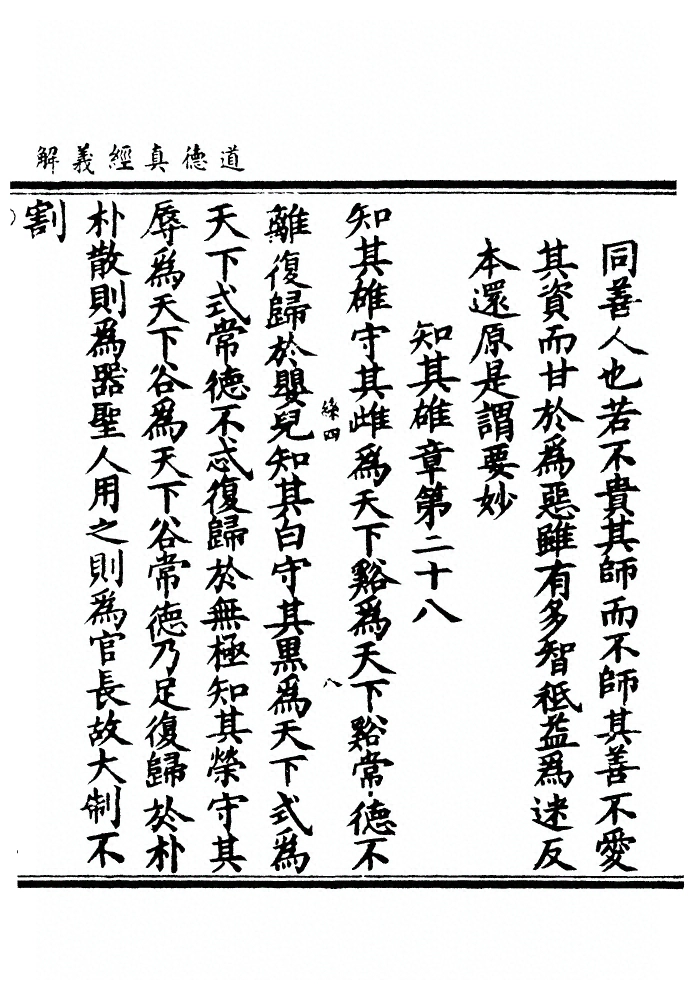 道德真經義解
同善人也若不貴其師而不師其善不愛
其資而甘於為惡雖有多智秪益為迷反
本還原是謂要妙
知其雄章第二十八
知其雄守其雌為天下谿為天下谿常德不
絲四
八
離復歸於嬰兒知其白守其黑為天下式為
天下式常德不忒復歸於無極知其榮守其
辱為天下谷為天下谷常德乃足復歸於朴
朴散則為器聖人用之則為官長故大制不
割